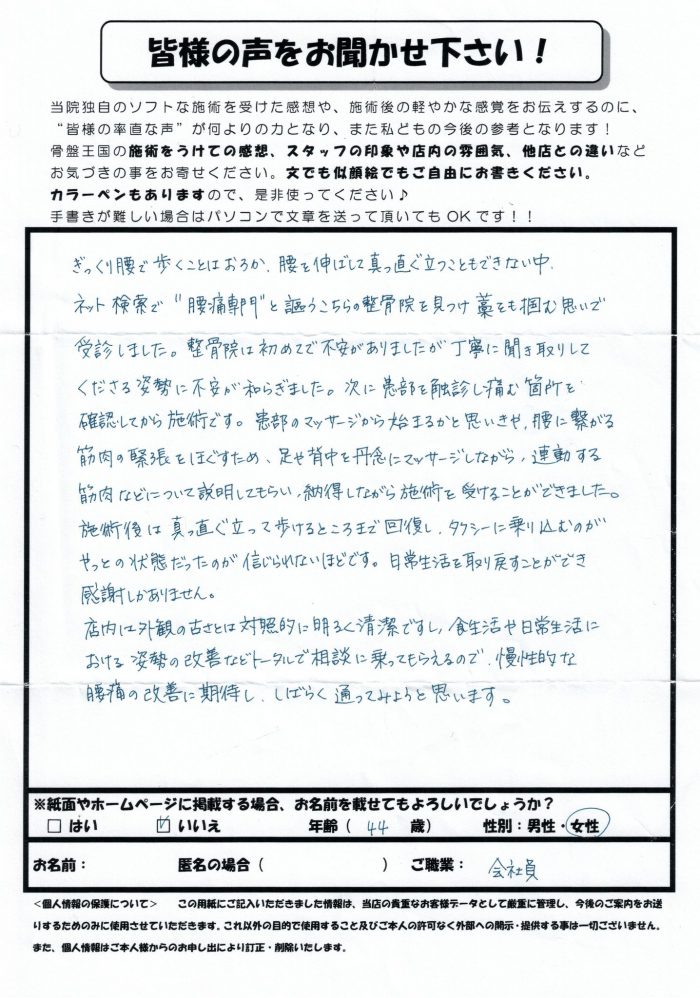 皆様の声をお聞かせ下さい！
当院独自のソフトな施術を受けた感想や、施術後の軽やかな感覚をお伝えするのに、
“皆様の率直な声”が何よりの力となり、また私どもの今後の参考となります！
骨盤王国の施術をうけての感想、スタッフの印象や店内の雰囲気、他店との違いなど
お気づきの事をお寄せください。文でも似顔絵でもご自由にお書きください。
カラーペンもありますので、是非使ってください♪
手書きが難しい場合はパソコンで文章を送って頂いてもOKです！！
ぎっくり腰で歩くことはおろか、腰を伸ばして真っ直ぐ立つこともできない中、
ネット検索で“腰痛専門”と謳うこちらの整骨院を見つけ藁をも掴む思いで
受診しました。整骨院は初めてで不安がありましたが丁寧に聞き取りして
くださる姿勢に不安が和らぎました。次に患部を触診し痛む箇所を
確認してから施術です。患部のマッサージから始まるかと思いきや、腰に繋がる
筋肉の緊張をほぐすため、足や背中を丹念にマッサージしながら、連動する
筋肉などについて説明してもらい、納得しながら施術を受けることができました。
施術後は真っ直ぐ立って歩けるところまで回復し、タクシーに乗り込むのが
やっとの状態だったのが信じられないほどです。日常生活を取り戻すことができ
感謝しかありません。
店内は外観の古さとは対照的に明るく清潔ですし、食生活や日常生活に
おける姿勢の改善などトータルで相談に乗ってもらえるので、慢性的な
腰痛の改善に期待し、しばらく通ってみようと思います。
※紙面やホームページに掲載する場合、お名前を載せてもよろしいでしょうか？
□はい ☑いいえ 年齢（ 44 歳） 性別：男性・女性
お名前： 匿名の場合（ ） ご職業： 会社員
＜個人情報の保護について＞ この用紙にご記入いただきました情報は、当店の貴重なお客様データとして厳重に管理し、今後のご案内をお送
りするためのみに使用させていただきます。これ以外の目的で使用すること及びご本人の許可なく外部への開示・提供する事は一切ございません。
また、個人情報はご本人様からのお申し出により訂正・削除いたします。